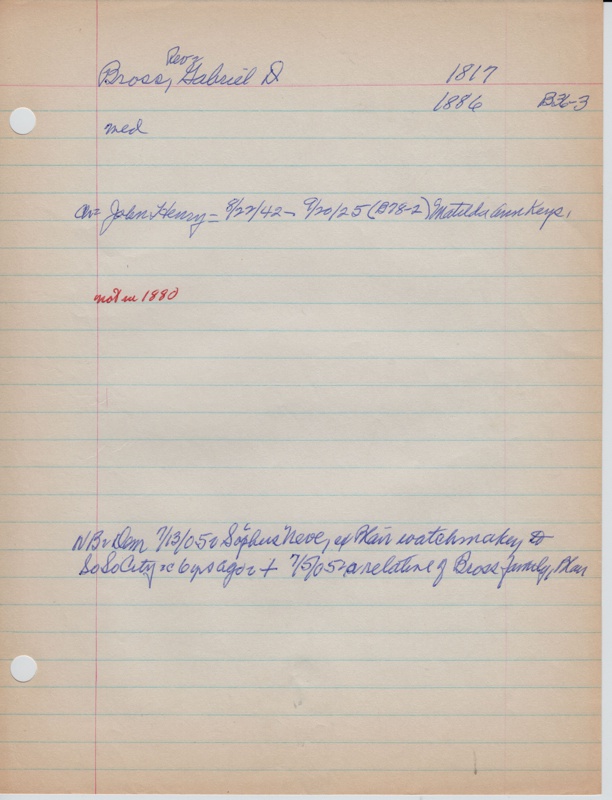 Rev
Bross, Gabriel D 1817
1886 B36-3
med
ch= John Henry = 8/22/42 - 9/20/25 (B78-2) Matilda Ann Keys,
not in 1880
NB: Dem 7/13/05: "Sophus" Neve, ex Plain watchmaker, to
SoSoCity c 6 yrs ago + 7/5/05 a relative of Bross family, Plain